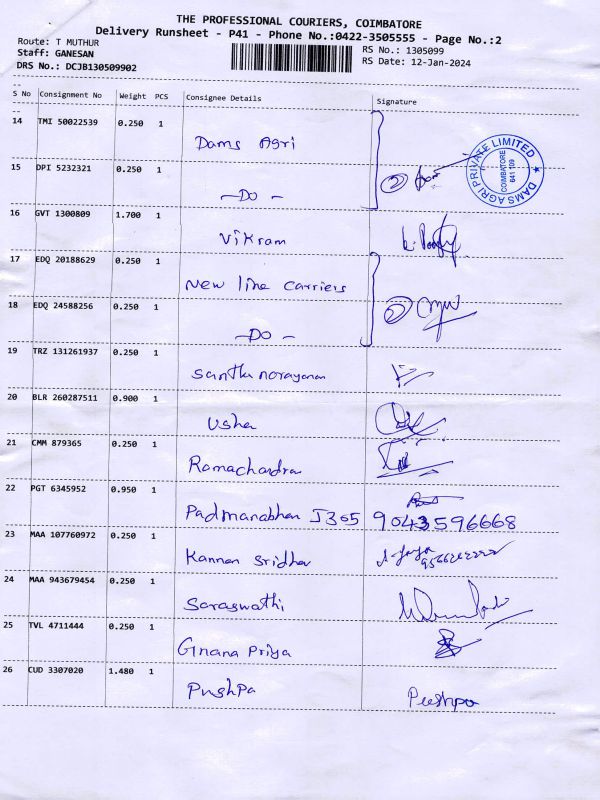 THE PROFESSIONAL COURIERS, COIMBATORE
Delivery Runsheet - P41 - Phone No.:0422-3505555 - Page No.:2
Route: T MUTHUR
RS No.: 1305099
Staff: GANESAN
RS Date: 12-Jan-2024
DRS No.: DCJB130509902
S No Consignment No Weight PCS Consignee Details Signature
14 TMI 50022539 0.250 1 Dams Agri
DAMS AGRI PRIVATE LIMITED
COIMBATORE
641 109
15 DPI 5232321 0.250 1 -DO- 2
16 GVT 1300809 1.700 1 Vikram
17 EDQ 20188629 0.250 1 New line carriers
18 EDQ 24588256 0.250 1 -DO- 2
19 TRZ 131261937 0.250 1 Santhu narayanan
20 BLR 260287511 0.900 1 Usha
21 CMM 879365 0.250 1 Ramachandran
22 PGT 6345952 0.950 1 Padmanabhan J305 9043596668
23 MAA 107760972 0.250 1 Kannan Sridhar
24 MAA 943679454 0.250 1 Saraswathi
25 TVL 4711444 0.250 1 Gnana Priya
26 CUD 3307020 1.480 1 Pushpa Pushpa